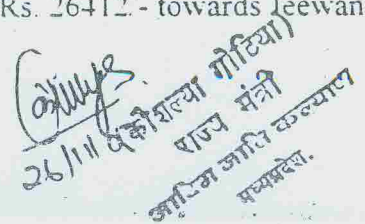 Rs. 26412.- towards Jeewan
26/11
(कौशल्या गोटिया)
राज्य मंत्री
आदिम जाति कल्याण
मध्यप्रदेश.